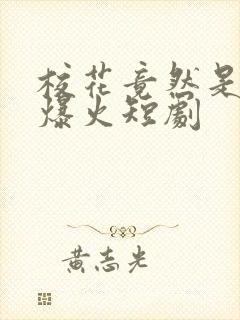 校花竟然是
爆火短劇
黄志光